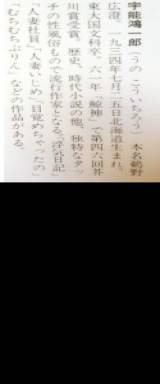 宇能鴻一郎（うの・こういちろう）　本名鵜野
広澄。一九三四年七月二五日北海道生まれ。
東大国文科卒。六一年「鯨神」で第四六回芥
川賞受賞。歴史、時代小説の他、独特なタッ
チの性風俗もので流行作家となる。「浮気日記」
「人妻社員」「人妻いじめ」「目覚めちゃったの」
「むちむちぷりん」などの作品がある。